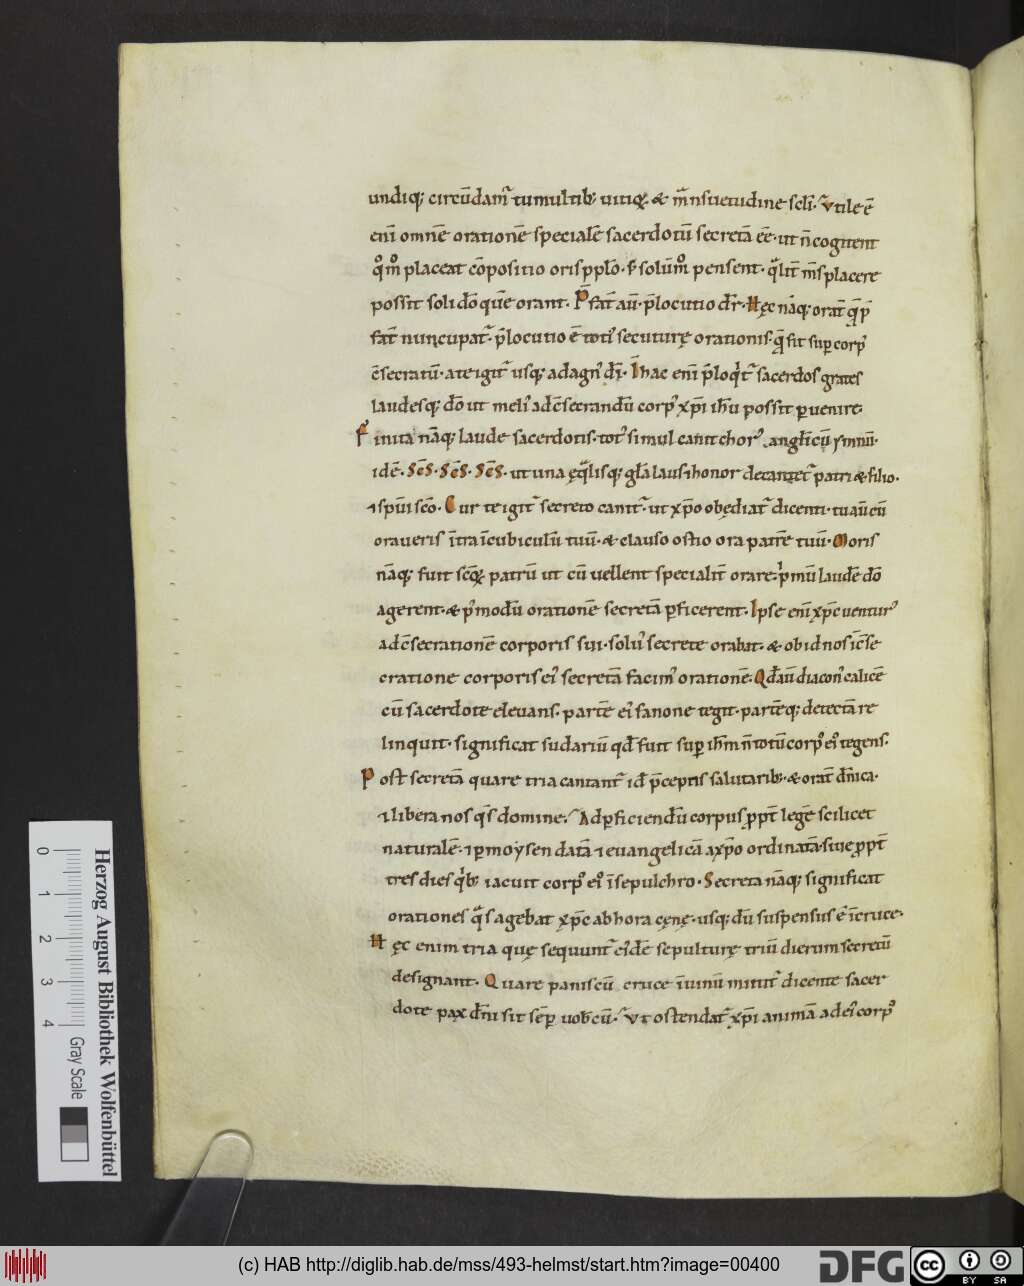 undiq; circūdam᷑ tumultib; uitioꝝ & mͣnsuetudine scłi. Vtile ē
enī omnē orationē specialē sacerdotū secretā ēē. ut ñ cogitent
qͦmͦ placeat cōpositio oris pplō. s; solūmͦ pensent. qͣlit̄ m̄s placere
possit soli dō quē orant. P̄fat̄ aū. p̄locutio dr̄. Hęc nāq; orat̄ q̄ p̄
fat̄ nuncupat᷑. p̄locutio ē totiꝰ secuturę orationis. q̄ fit sup corpꝰ
c̄secratū. a teigit᷑ usq; ad agnꝰ dī. In hac enī p̄loqͥt᷑ sacerdos grates
laudesq; dō ut meliꝰ ad c̄secrandū corpꝰ xp̄i ih̄u possit puenire.
Finita nāq; laude sacerdotis. totꝰ simul canit chorꝰ angl̄icū ymnū.
idē. Sc̄s. Sc̄s. Sc̄s. ut una ęqͣlisq; gl̄a laus ⁊ honor decantet᷑ patri & filio.
⁊ spūi sc̄o. Cur te igit᷑ secreto canit᷑. ut xp̄o obędiat᷑ dicenti. tu aū cū
oraueris ītra ī cubiculū tuū. & clauso ostio ora patrē tuū. Moris
nāq; fuit sc̄oꝝ patrū ut cū uellent specialit̄ orare. pͥmū laudē dō
agerent. & pꝰmodū orationē secretā pficerent. Ipse enī xp̄c uenturꝰ
ad c̄secrationē corporis sui. solꝰ secrete orabat. & ob id nos ī c̄se
cratione corporis eiꝰ secretā facimꝰ orationē. Qd̄ aū diaconꝰ calicē
cū sacerdote eleuans. partē eiꝰ fanone tegit. partēq; detectā re
linquit. significat sudariū qd̄ fuit sup ih̄m ñ totū corpꝰ eiꝰ tegens.
Post secretā quare tria cantant᷑ id ē p̄ceptis salutarib; & orat̄ dn̄ica.
⁊ libera nos qs̄ domine. Ad pficiendū corpus ppt̄ legē scilicet
naturalē. ⁊ p moysen datā ⁊ euangelicā a xp̄o ordinatā. siue ppt̄
tres dies qͥb; iacuit corpꝰ eiꝰ ī sepulchro. Secreta nāq; significat
orationes qͣs agebat xp̄c ab hora cęnę. usq; dū suspensus ē ī cruce.
Hęc enim tria quę sequunt᷑ eidē sepulturę triū dierum secretū
designant. Quare panis cū cruce ī uinū mitit᷑ dicente sacer
dote pax dn̄i sit sēp uob̄cū. Vt ostendat᷑ xp̄i animā ad eiꝰ corpꝰ
Herzog August Bibliothek Wolfenbüttel
0 1 2 3 4 Gray Scale
(c) HAB http://diglib.hab.de/mss/493-helmst/start.htm?image=00400
DFG
cc BY SA